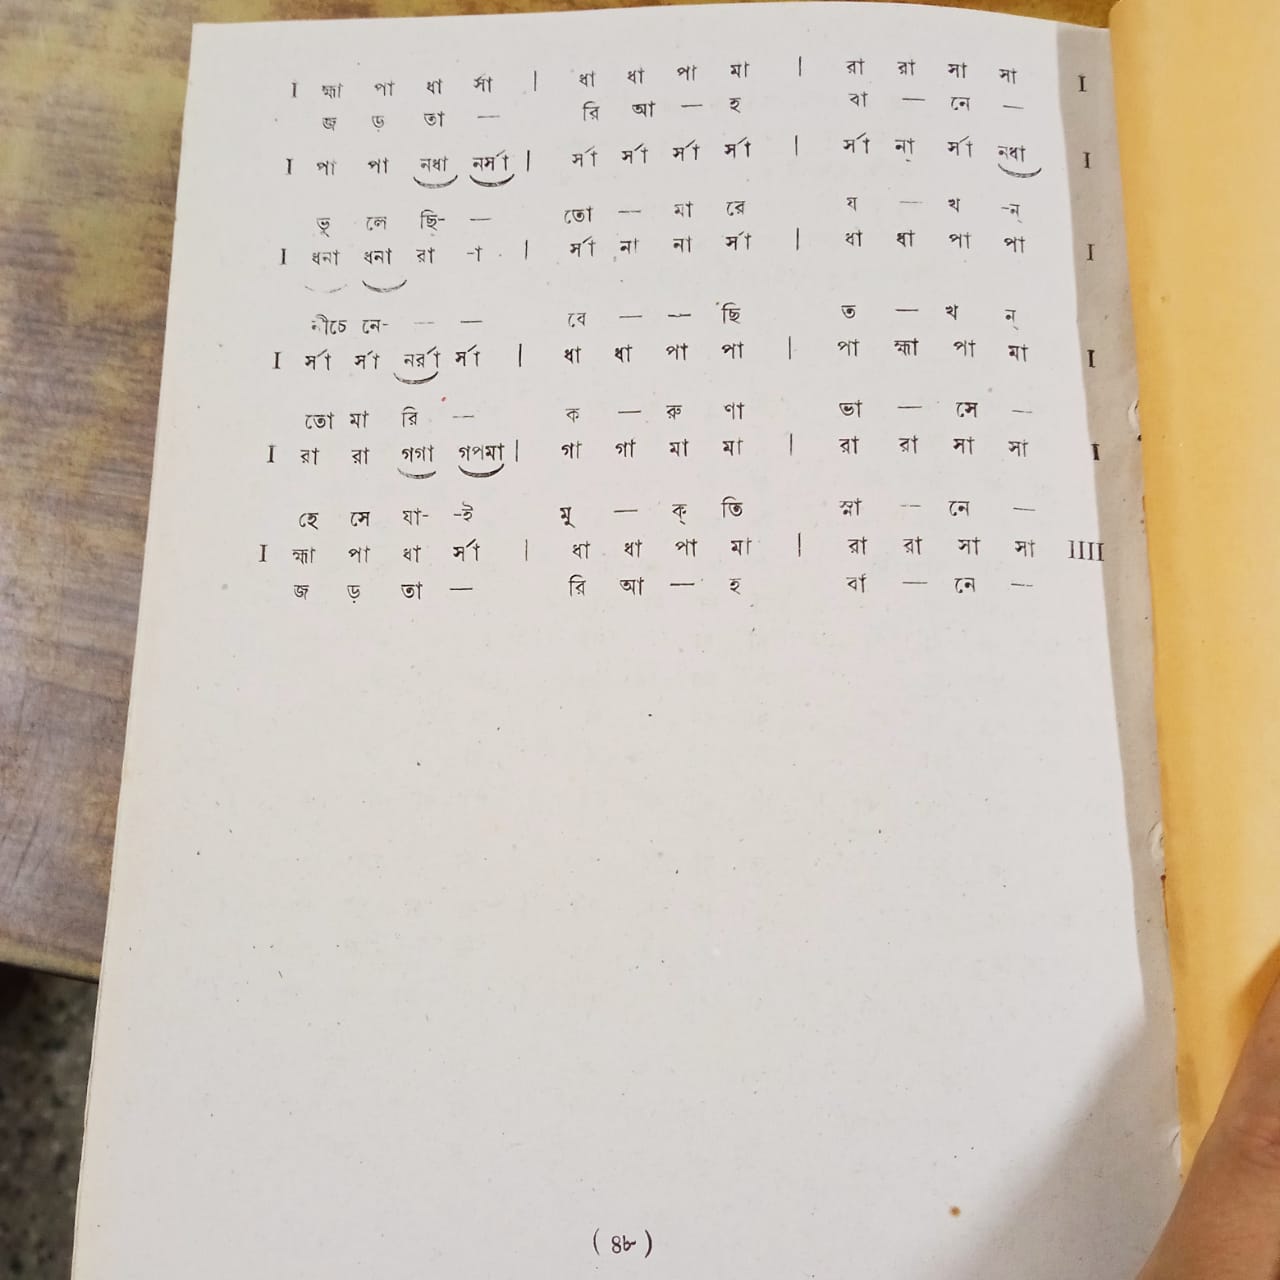 I হ্মা পা ধা র্সা | ধা ধা পা মা | রা রা সা সা I
জ ড় তা — রি আ — হ বা — নে —
I পা পা নধা নর্সা | র্সা র্সা র্সা র্সা | র্সা না র্সা নধা I
ভু লে ছি- — তো — মা রে য — খ -ন্
I ধনা ধনা রা -া | র্সা না না র্সা | ধা ধা পা পা I
নীচে নে- — — বে — — ছি ত — খ ন্
I র্সা র্সা নর্রা র্সা | ধা ধা পা পা | পা হ্মা পা মা I
তো মা রি — ক — রু ণা ভা — সে —
I রা রা গগা গপমা | গা গা মা মা | রা রা সা সা I
হে সে যা- -ই মু — ক্ তি স্না — নে —
I হ্মা পা ধা র্সা | ধা ধা পা মা | রা রা সা সা IIII
জ ড় তা — রি আ — হ বা — নে —
( ৪৮ )